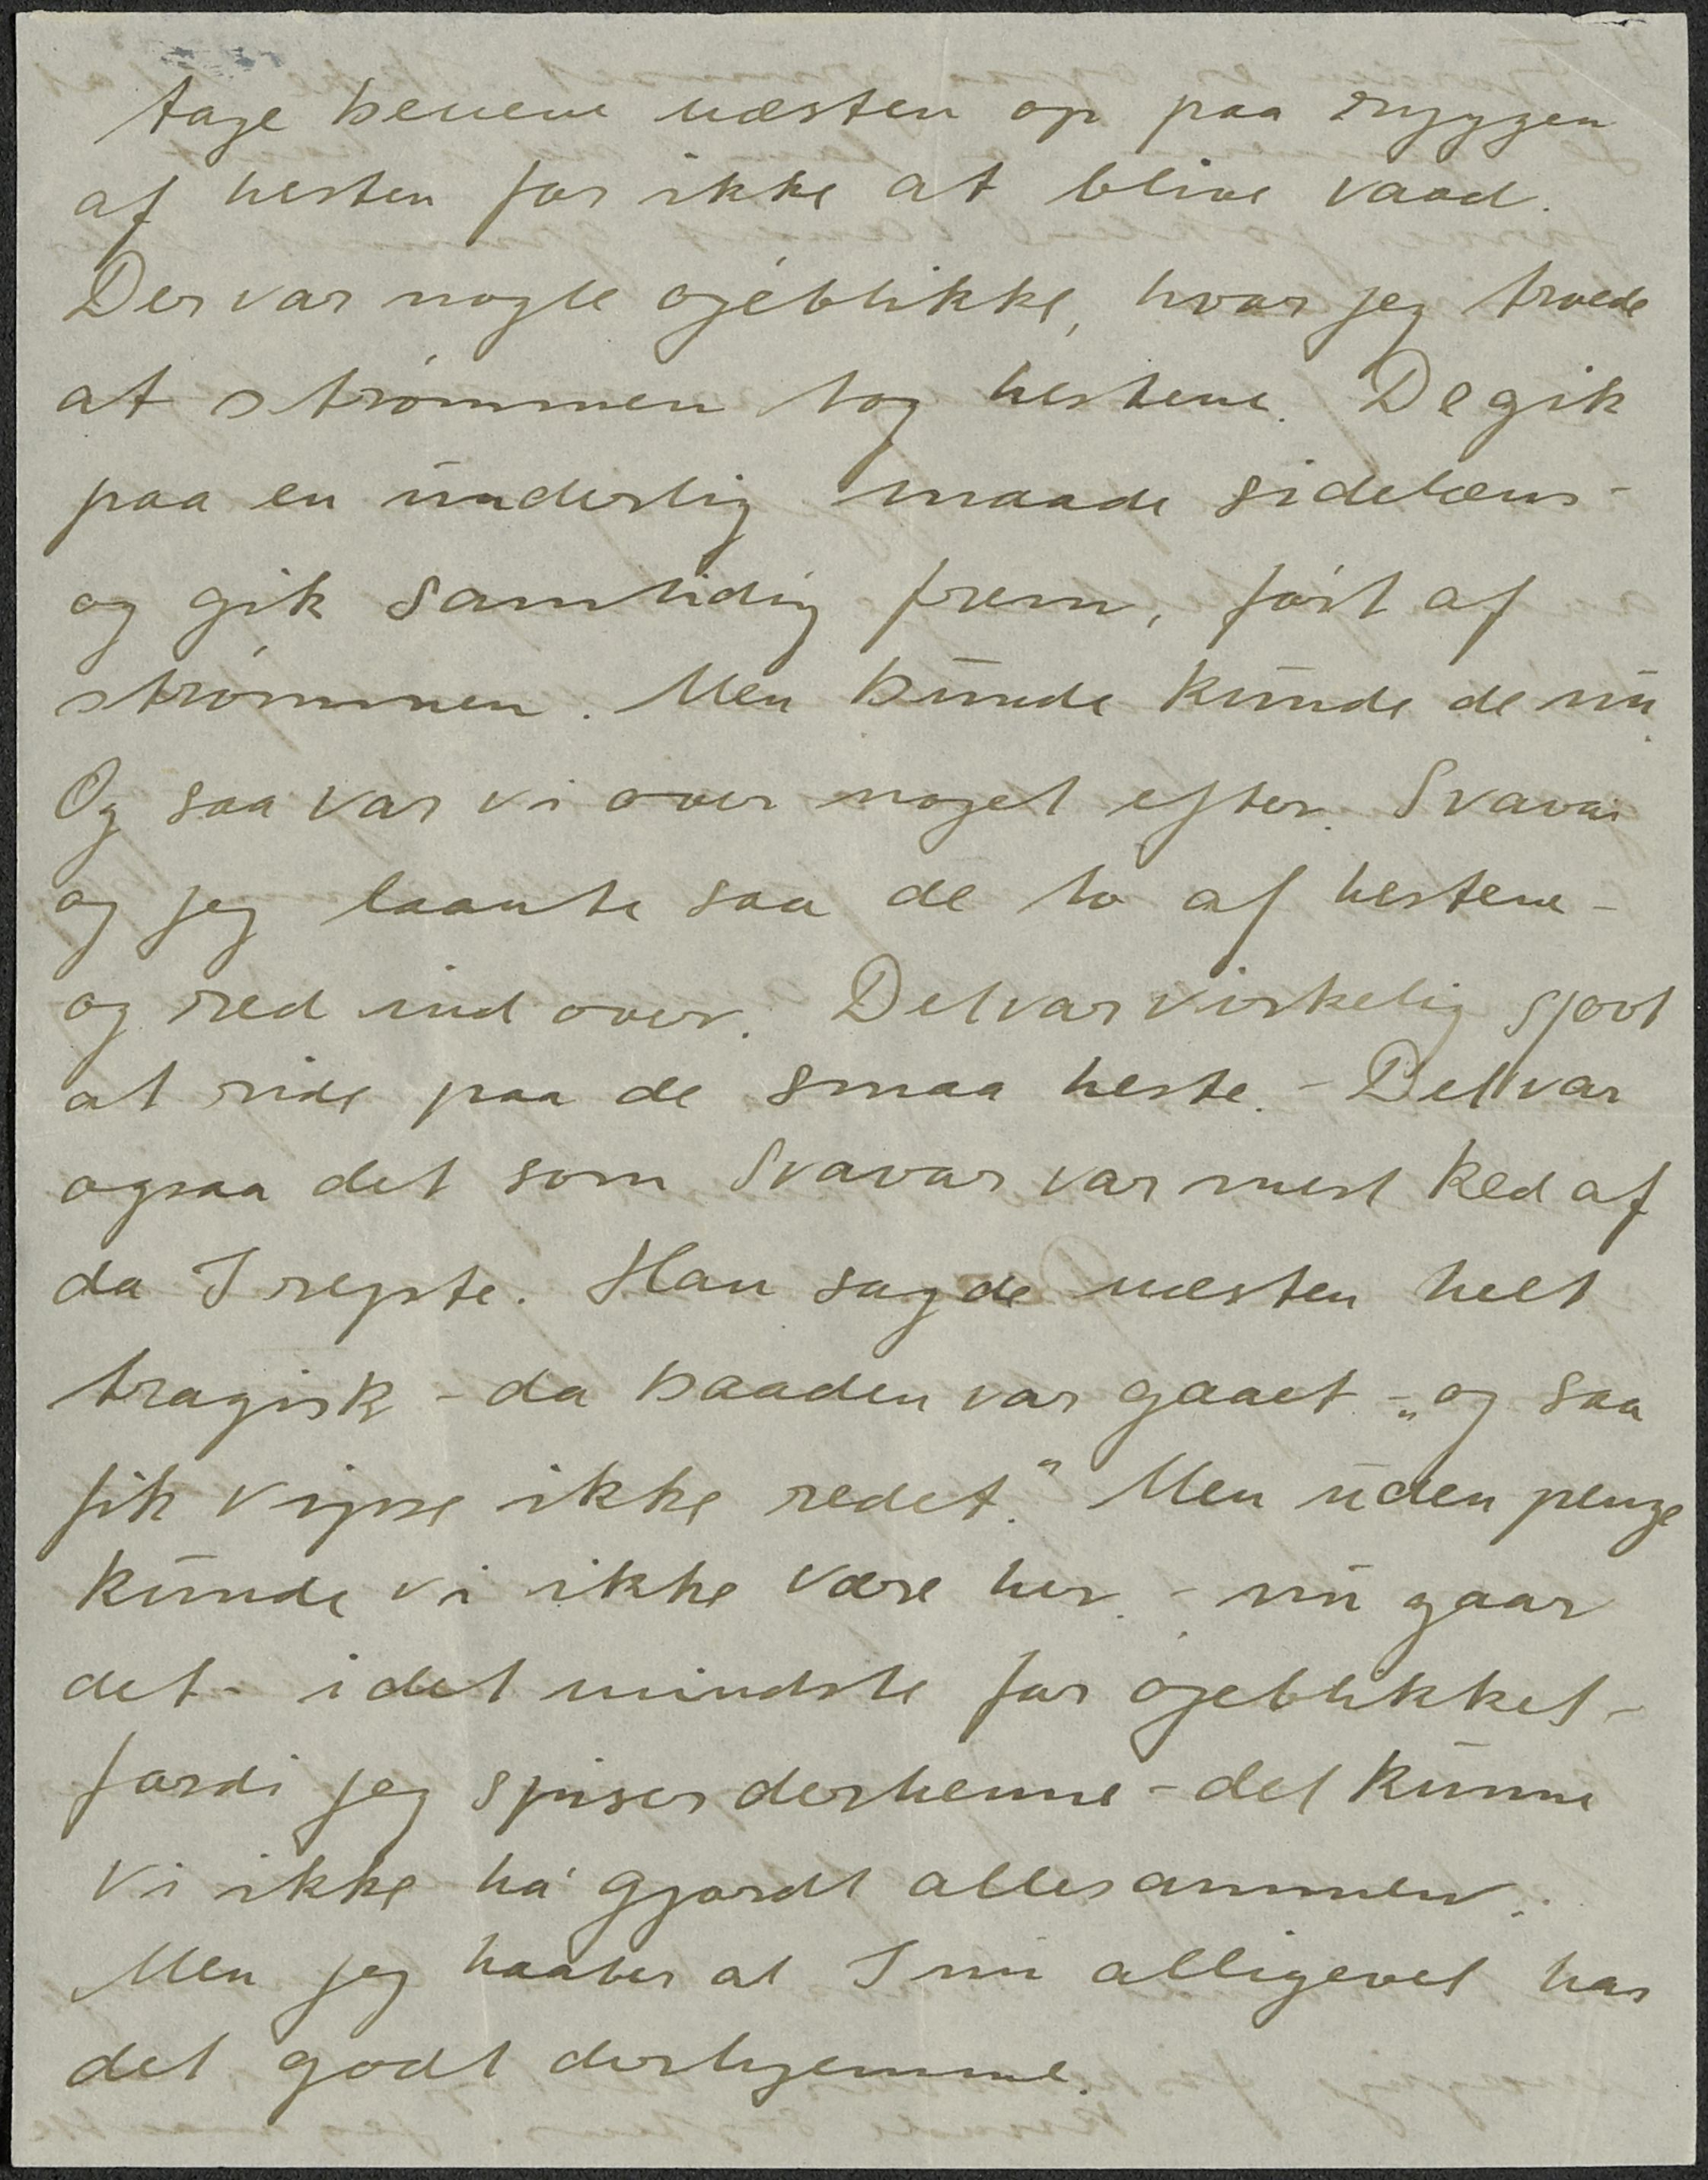 tage benene næsten op paa ryggen
af hesten for ikke at blive vaad.
Der var nogle øjeblikke, hvor jeg troede
at strømmen tog hestene. De gik
paa en underlig maade sidelæns -
og gik samtidig frem, ført af
strømmen. Men bunde kunde de nu.
Og saa var vi over noget efter. Svavar
og jeg laante saa de to af hestene -
og red ind over. Det var virkelig sjovt
at ride paa de smaa heste. - Det var
ogsaa det som Svavar var mest ked af
da I rejste. Han sagde næsten helt
tragisk - da baaden var gaaet - „og saa
fik Vipse ikke redet.“ Men uden penge
kunde vi ikke være her. - nu gaar
det - i det mindste for øjeblikket -
fordi jeg spiser derhenne - det kunne
vi ikke ha' gjordt allesammen.
Men jeg haaber at I nu alligevel har
det godt derhjemme.